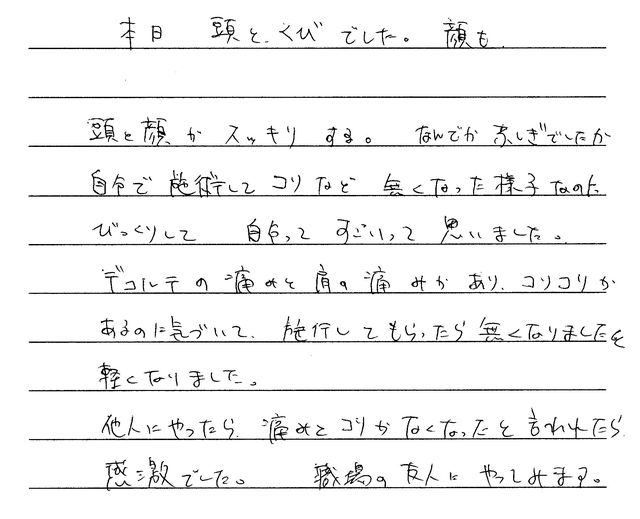 本日 頭と、くびでした。 顔も
頭と顔がスッキリする。 なんでかふしぎでしたが
自分で施術してコリなど無くなった様子なのに
びっくりして 自分ってすごいって思いました。
デコルテの痛みと肩の痛みがあり、コリコリが
あるのに気づいて、施行してもらったら無くなりました
軽くなりました。
他人にやったら、痛みとコリがなくなったと言われたら
感激でした。 職場の友人にやってみます。